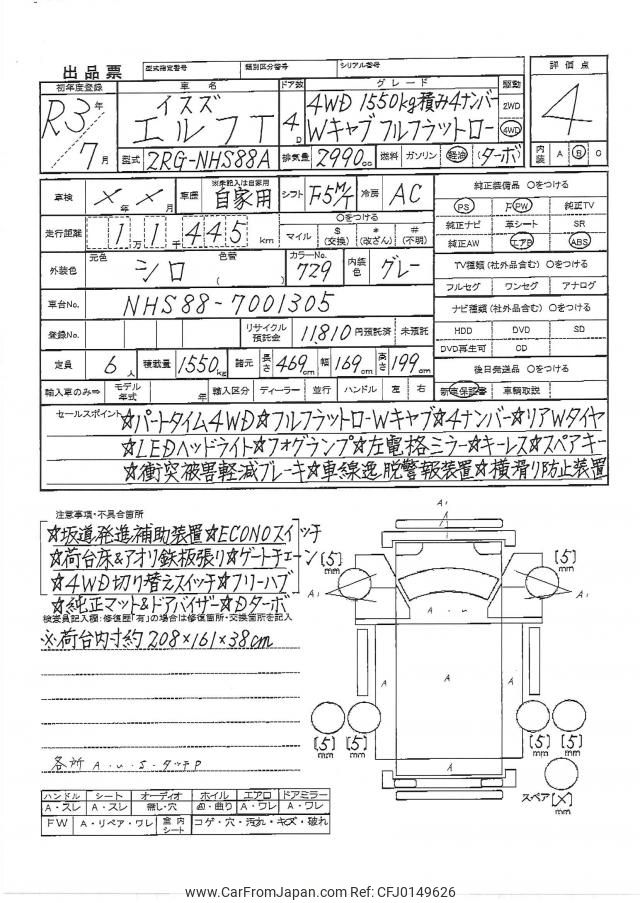 出品票 型式指定番号 類別区分番号 シリアル番号
初年度登録 車名 ドア数 グレード 駆動 評価点
R3年 イスズ 4WD 1550kg積み4ナンバー 2WD 4
7月 エルフT 4D Wキャブフルフラットロー 4WD
型式 2RG-NHS88A 排気量 2990cc 燃料 ガソリン 軽油 (ターボ) 内装 A B C
車検 X年X月 車歴 ※未記入は自家用 自家用 シフト F5M/T 冷房 AC 純正装備品 ○をつける
PS PW 純正TV
走行距離 1万1千445km ○をつける マイル $(交換) *(改ざん) #(不明) 純正ナビ 革シート SR
純正AW エアB ABS
外装色 元色 シロ 色替 ( ) カラーNo. 729 内装色 グレー TV種類(社外品含む) ○をつける
フルセグ ワンセグ アナログ
車台No. NHS88-7001305 ナビ種類(社外品含む) ○をつける
登録No. リサイクル預託金 11810円預託済 未預託 HDD DVD SD
DVD再生可 CD
定員 6人 積載量 1550kg 諸元 長さ469cm 幅169cm 高さ199cm 後日発送品 ○をつける
輸入車のみ⇒ モデル年式 年 輸入区分 ディーラー 並行 ハンドル 左 右 新車保証書 車輌取説
セールスポイント ☆パートタイム4WD☆フルフラットローWキャブ☆4ナンバー☆リアWタイヤ
☆LEDヘッドライト☆フォグランプ☆左電格ミラー☆キーレス☆スペアキー
☆衝突被害軽減ブレーキ☆車線逸脱警報装置☆横滑り防止装置
注意事項・不具合箇所
☆坂道発進補助装置☆ECONOスイッチ
☆荷台床&アオリ鉄板張り☆ゲートチェーン
☆4WD切り替えスイッチ☆フリーハブ
☆純正マット&ドアバイザー☆Dターボ
検査員記入欄:修復歴「有」の場合は修復箇所・交換箇所を記入
※荷台内寸約208×161×38cm
各所 A.u.S.タッチP
A1
[5]mm [5]mm
A1 A1
A.u
A A A
[5]mm [5]mm [5]mm [5]mm
スペア[X]mm
ハンドル シート オーディオ ホイル エアロ ドアミラー
A・スレ A・スレ 無し・穴 凹・曲り A・ワレ A・ワレ
FW A・リペア・ワレ 室内シート コゲ・穴・汚れ・キズ・破れ
www.CarFromJapan.com Ref: CFJ0149626